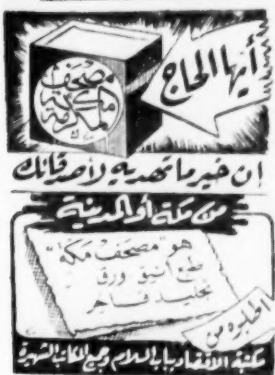 أيها الحاج
مصحف
مكة
المكرمة
إن خير ما تهديه لأصدقائك
من مكة أو المدينة
هو "مصحف مكة"
طبع أنيق ورق
تجليد فاخر
اطلبوه من
مكتبة الاقتصاد بباب السلام وجميع المكاتب الشهيرة